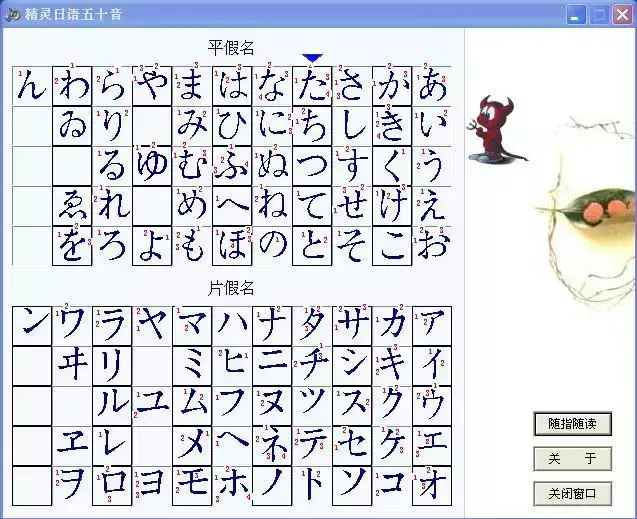 精灵日语五十音
平假名
ん わ ら や ま は な た さ か あ
ゐ り み ひ に ち し き い
る ゆ む ふ ぬ つ す く う
ゑ れ め へ ね て せ け え
を ろ よ も ほ の と そ こ お
片假名
ン ワ ラ ヤ マ ハ ナ タ サ カ ア
ヰ リ ミ ヒ ニ チ シ キ イ
ル ユ ム フ ヌ ツ ス ク ウ
ヱ レ メ ヘ ネ テ セ ケ エ
ヲ ロ ヨ モ ホ ノ ト ソ コ オ
随指随读
关 于
关闭窗口